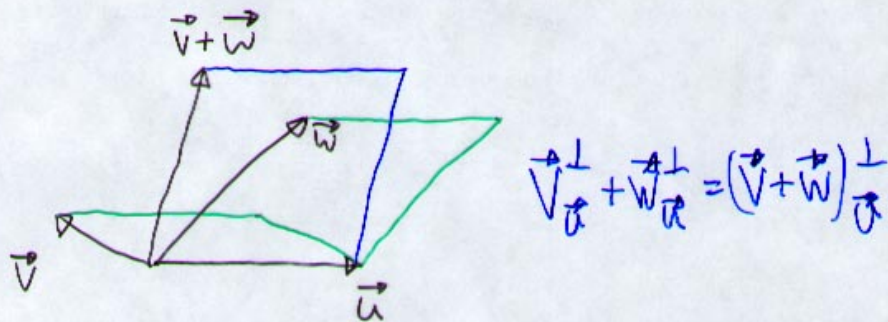 v⃗ + w⃗
w⃗
v⃗
u⃗
v⃗^⊥_u⃗ + w⃗^⊥_u⃗ = (v⃗ + w⃗)^⊥_u⃗